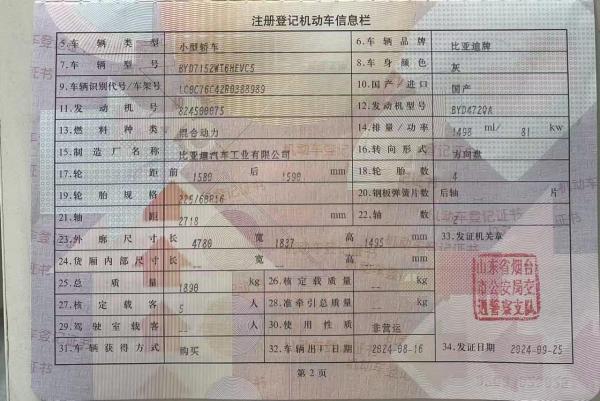 注册登记机动车信息栏
5.车辆类型 小型轿车 6.车辆品牌 比亚迪牌
7.车辆型号 BYD7152WT6HEVC5 8.车身颜色 灰
9.车辆识别代号/车架号 LC0C76C42R0388989 10.国产/进口 国产
11.发动机号 824500075 12.发动机型号 BYD472QA
13.燃料种类 混合动力 14.排量/功率 1498 ml/ 81 kw
15.制造厂名称 比亚迪汽车工业有限公司 16.转向形式 方向盘
17.轮距 前 1580 后 1590 mm 18.轮胎数 4
19.轮胎规格 225/60R16 20.钢板弹簧片数 后轴 -- 片
21.轴距 2718 mm 22.轴数 2
23.外廓尺寸 长 4780 宽 1837 高 1495 mm 33.发证机关章
24.货厢内部尺寸 长 -- 宽 -- 高 -- mm
25.总质量 1890 kg 26.核定载质量 -- kg
27.核定载客 5 人 28.准牵引总质量 -- kg
29.驾驶室载客 -- 人 30.使用性质 非营运
31.车辆获得方式 购买 32.车辆出厂日期 2024-08-16 34.发证日期 2024-09-25
山东省烟台
市公安局交
通警察支队
第2页